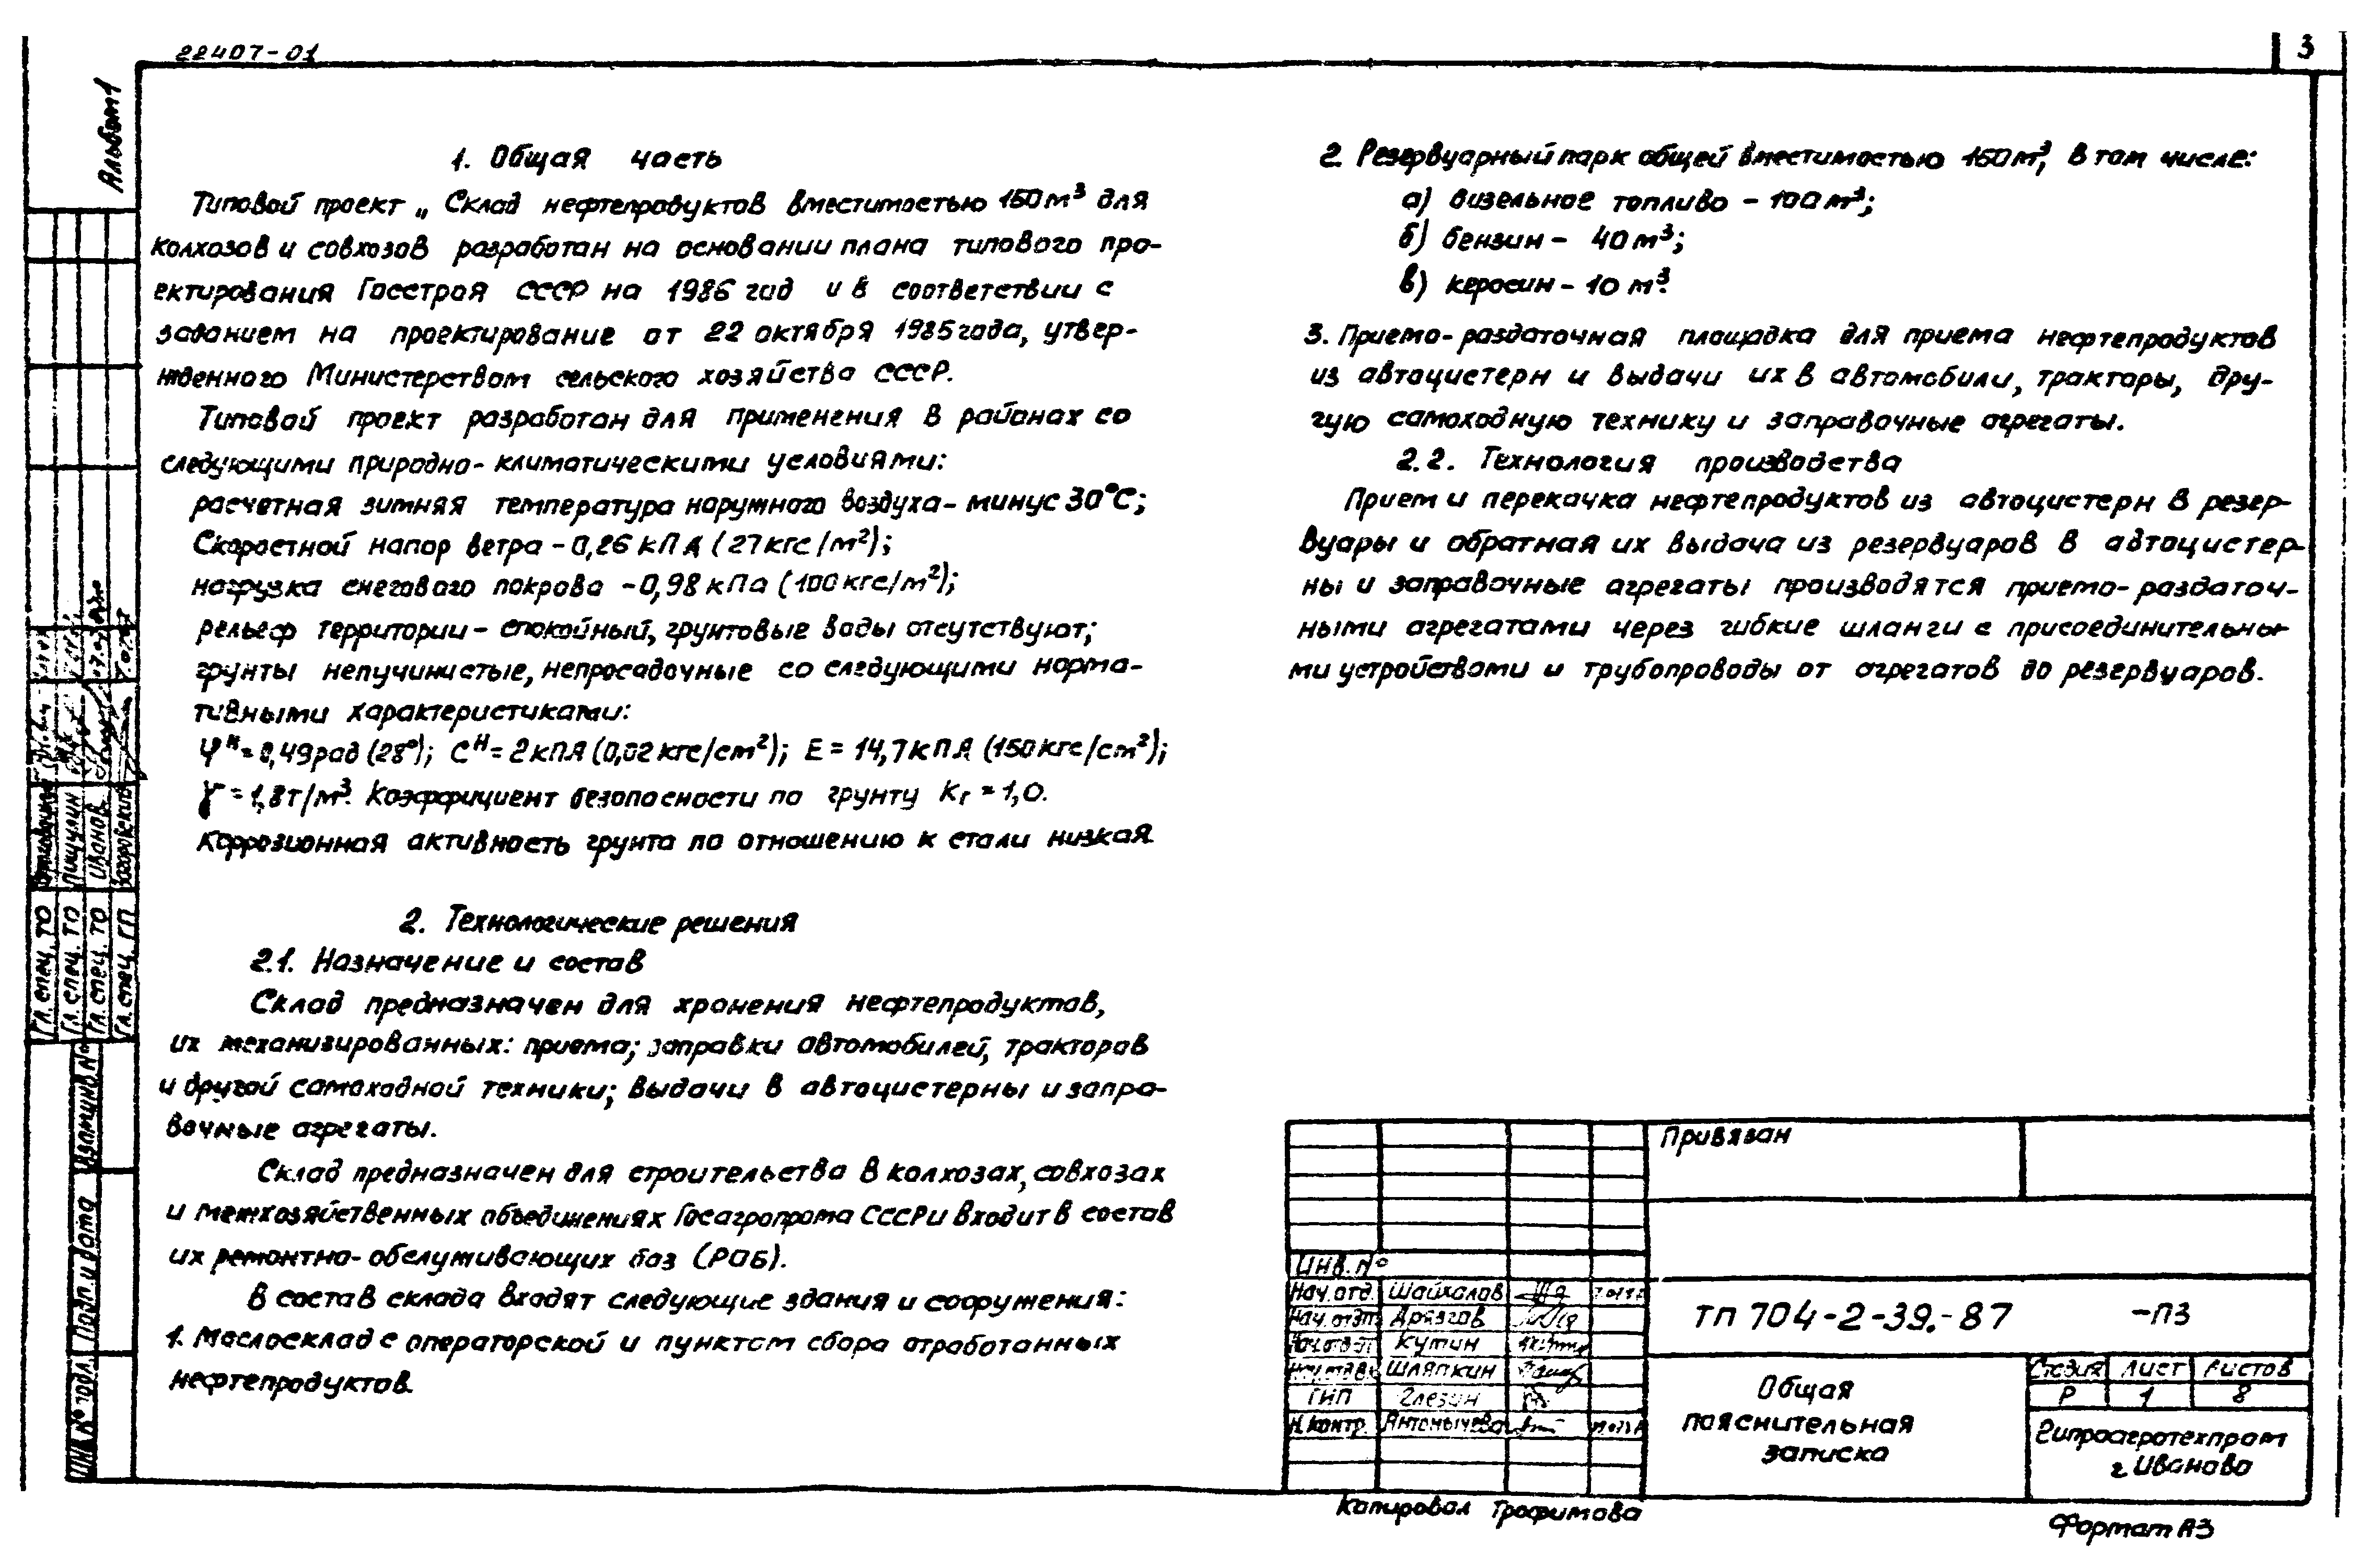 22407-01
3
Альбом 1
1. Общая часть
Типовой проект „ Склад нефтепродуктов вместимостью 150м³ для
колхозов и совхозов разработан на основании плана типового про-
ектирования Госстроя СССР на 1986 год и в соответствии с
заданием на проектирование от 22 октября 1985года, утвер-
жденного Министерством сельского хозяйства СССР.
Типовой проект разработан для применения в районах со
следующими природно-климатическими условиями:
расчетная зимняя температура наружного воздуха - минус 30°С;
Скоростной напор ветра - 0,26 кПА (27кгс/м²);
нагрузка снегового покрова - 0,98 кПа (100кгс/м²);
рельеф территории - спокойный, грунтовые воды отсутствуют;
грунты непучинистые, непросадочные со следующими норма-
тивными характеристиками:
φᴴ = 0,49рад (28°); Сᴴ = 2кПА (0,02 кгс/см²); Е = 14,7кПА (150кгс/см²);
γ = 1,8т/м³. Коэффициент безопасности по грунту Кг = 1,0.
Коррозионная активность грунта по отношению к стали низкая.
2. Технологические решения
2.1. Назначение и состав
Склад предназначен для хранения нефтепродуктов,
их механизированных: приема; заправки автомобилей, тракторов
и другой самоходной техники; выдачи в автоцистерны и запра-
вочные агрегаты.
Склад предназначен для строительства в колхозах, совхозах
и межхозяйственных объединениях Госагропрома СССР и входит в состав
их ремонтно-обслуживающих баз (РОБ).
В состав склада входят следующие здания и сооружения:
1. Маслосклад с операторской и пунктом сбора отработанных
нефтепродуктов.
2. Резервуарный парк общей вместимостью 150м³, в том числе:
а) дизельное топливо - 100м³;
б) бензин - 40м³;
в) керосин - 10 м³.
3. Приемо-раздаточная площадка для приема нефтепродуктов
из автоцистерн и выдачи их в автомобили, тракторы, дру-
гую самоходную технику и заправочные агрегаты.
2.2. Технология производства
Прием и перекачка нефтепродуктов из автоцистерн в резер-
вуары и обратная их выдача из резервуаров в автоцистер-
ны и заправочные агрегаты производятся приемо-раздаточ-
ными агрегатами через гибкие шланги с присоединительны-
ми устройствами и трубопроводы от агрегатов до резервуаров.
Гл. спец. ТО
Гл. спец. ТО Пикулин
Гл. спец. ТО Иванов
Гл. спец. ГП
Взам.инв.№
Подп. и дата
Инв.№ подл.
Привязан
Инв.№
Нач.отд. Шайхалов
Нач.отд. Дрязгов
Нач.отд. Кутин
Нач.отд. Шляпкин
ГИП Глезин
Н.контр. Антонычева
ТП 704-2-39.-87 -ПЗ
Общая
пояснительная
записка
Стадия Лист Листов
Р 1 8
Гипроагротехпром
г. Иваново
Копировал Трофимова
Формат А3